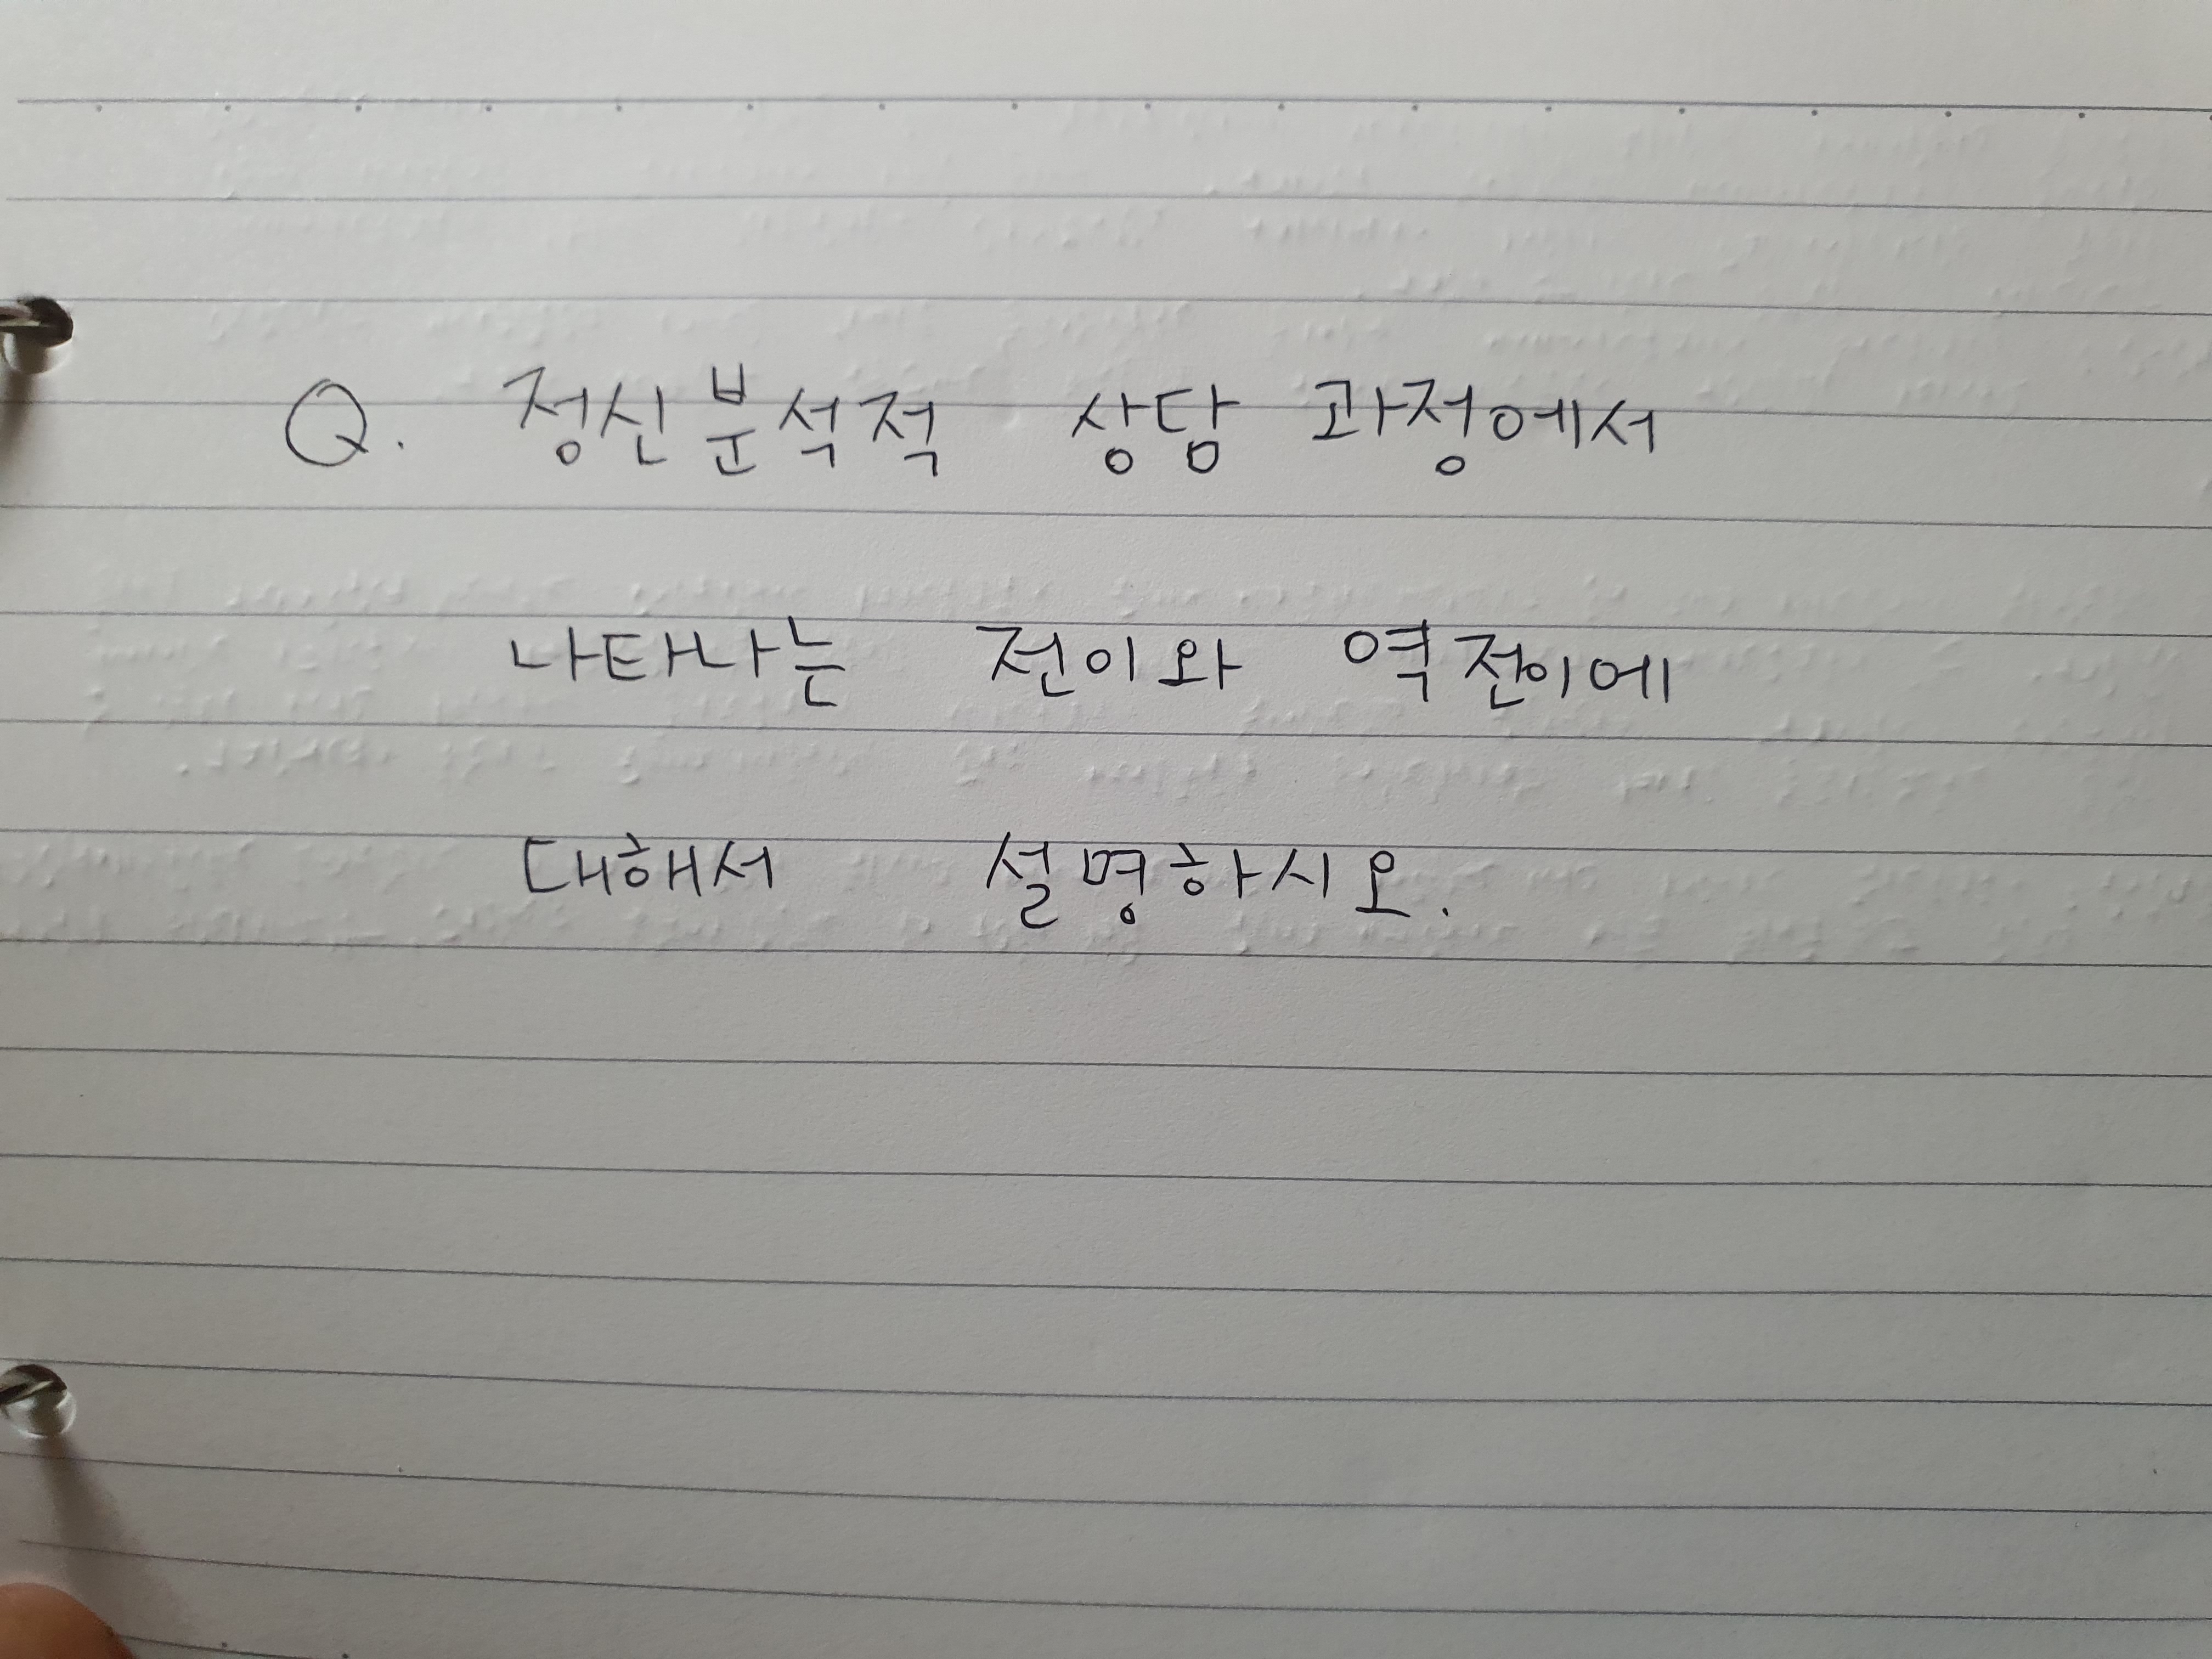 Q. 정신분석적 상담 과정에서
나타나는 전이와 역전이에
대해서 설명하시오.